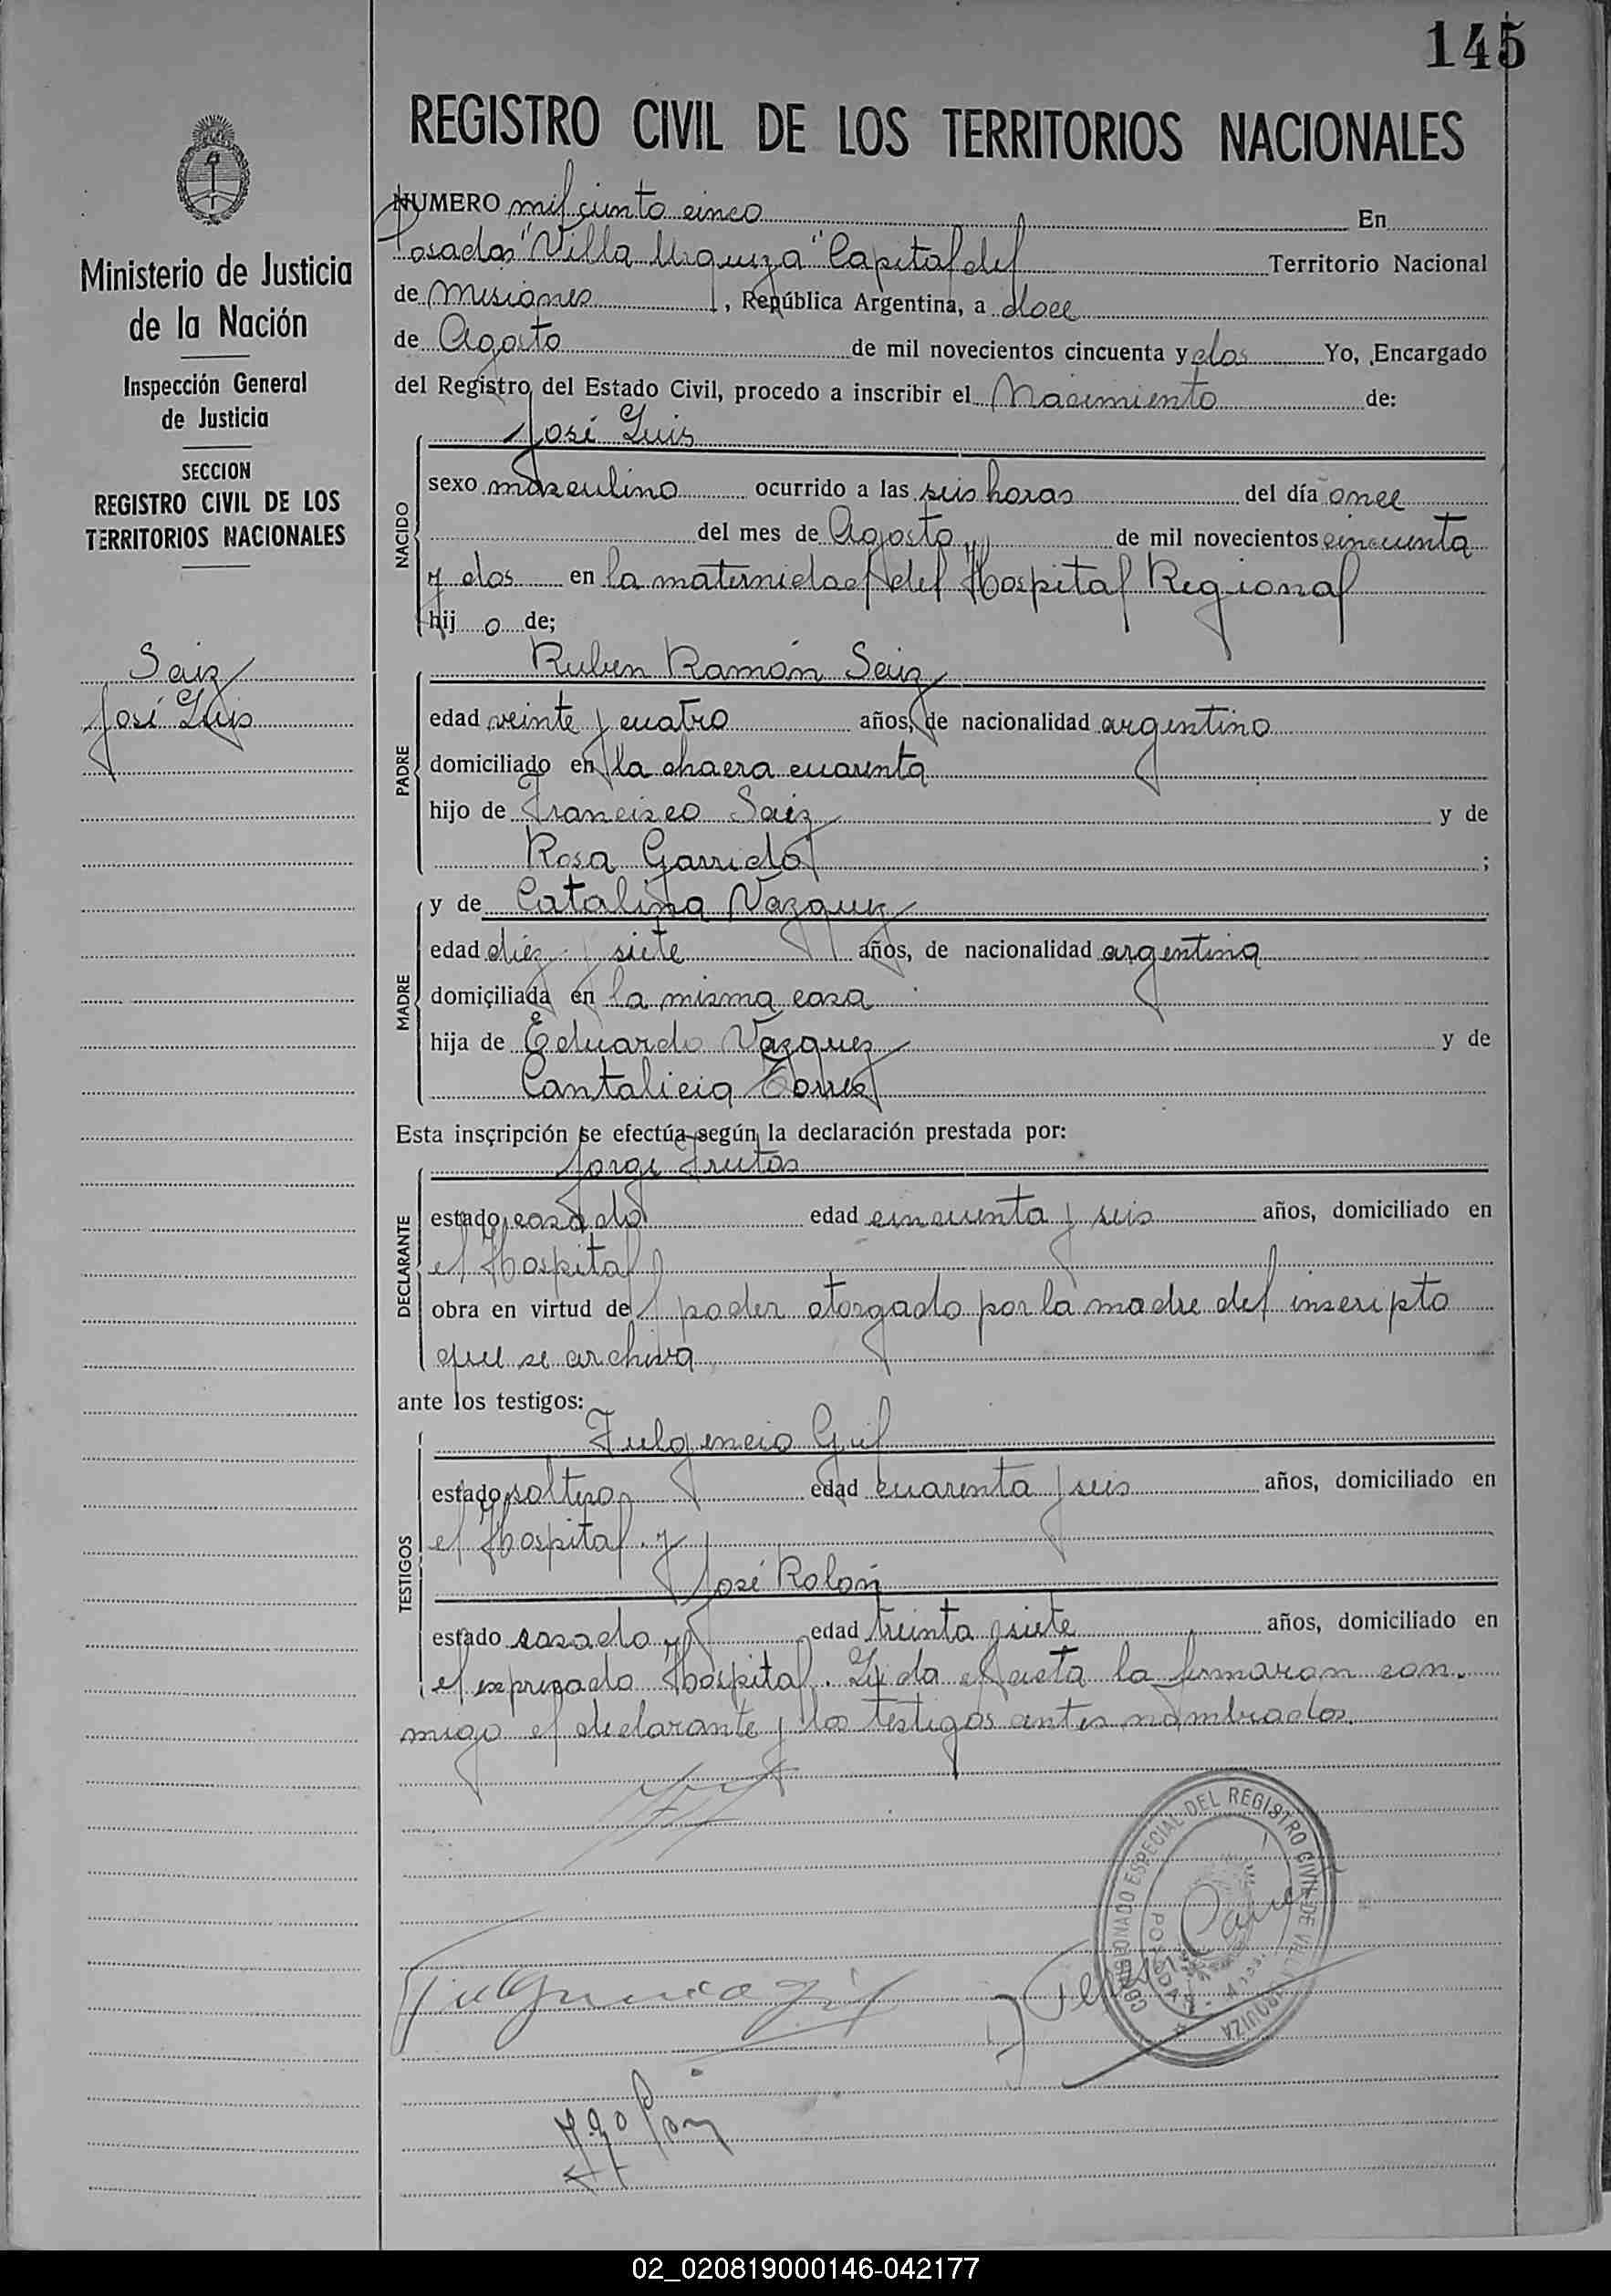 145
REGISTRO CIVIL DE LOS TERRITORIOS NACIONALES
Ministerio de Justicia
de la Nación
Inspección General
de Justicia
SECCION
REGISTRO CIVIL DE LOS
TERRITORIOS NACIONALES
Saiz
José Luis
NUMERO mil ciento cinco En
Posadas "Villa Urquiza" Capital del Territorio Nacional
de Misiones, República Argentina, a doce
de Agosto de mil novecientos cincuenta y dos Yo, Encargado
del Registro del Estado Civil, procedo a inscribir el Nacimiento de:
NACIDO
José Luis
sexo masculino ocurrido a las seis horas del día once
del mes de Agosto de mil novecientos cincuenta
y dos en la maternidad del Hospital Regional
hij o de;
PADRE
Ruben Ramón Saiz
edad veinte y cuatro años, de nacionalidad argentino
domiciliado en la chacra cuarenta
hijo de Francisco Saiz y de
Rosa Garrido ;
MADRE
y de Catalina Vazquez
edad diez y siete años, de nacionalidad argentina
domiciliada en la misma casa
hija de Eduardo Vazquez y de
Cantalicia Torres
Esta inscripción se efectúa según la declaración prestada por:
DECLARANTE
Jorge Frutos
estado casado edad cincuenta y seis años, domiciliado en
el Hospital
obra en virtud del poder otorgado por la madre del inscripto
que se archiva
ante los testigos:
TESTIGOS
Fulgencio Gil
estado soltero edad cuarenta y seis años, domiciliado en
el Hospital y
José Rolón
estado casado y edad treinta y siete años, domiciliado en
el expresado Hospital. Leida el acta la firmaron con
migo el declarante y los testigos antes nombrados.
COMISIONADO ESPECIAL DEL REGISTRO CIVIL DE VILLA URQUIZA
POSADAS
Fulgencio Gil
02_020819000146-042177